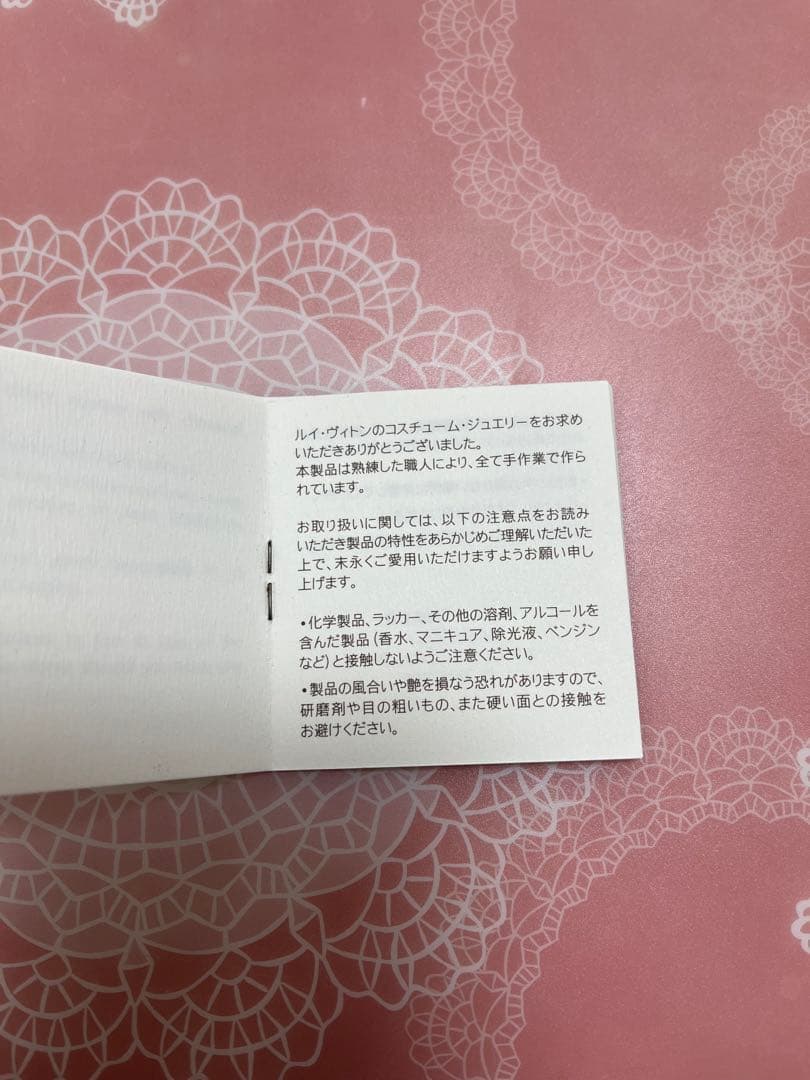 ルイ・ヴィトンのコスチューム・ジュエリーをお求め
いただきありがとうございました。
本製品は熟練した職人により、全て手作業で作ら
れています。
お取り扱いに関しては、以下の注意点をお読み
いただき製品の特性をあらかじめご理解いただいた
上で、末永くご愛用いただけますようお願い申し
上げます。
・化学製品、ラッカー、その他の溶剤、アルコールを
含んだ製品（香水、マニキュア、除光液、ベンジン
など）と接触しないようご注意ください。
・製品の風合いや艶を損なう恐れがありますので、
研磨剤や目の粗いもの、また硬い面との接触を
お避けください。